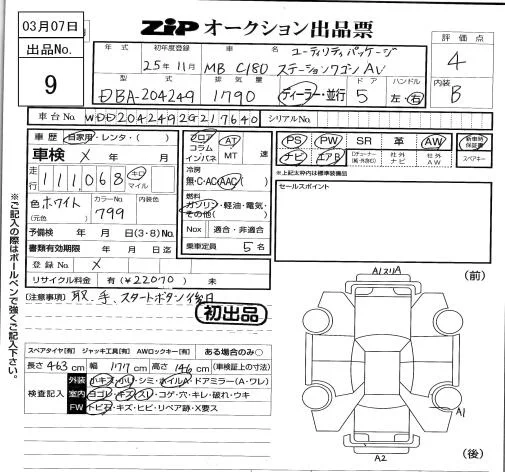 03月07日
ZiP オークション出品票
出品No.
9
年式 初年度登録 車名
25年11月 MB C180 ユーティリティパッケージ
ステーションワゴンAV
評価点
4
型式 排気量 ドア ハンドル
DBA-204249 1790 ディーラー・並行 5 左・右
内装
B
車台No. WDD2042492G217640 シリアルNo.
車歴 自家用・レンタ・( )
車検 × 年 月
走行 111,068 キロ マイル
色 ホワイト カラーNo. 799 内装色
(元色)
予備検 年 月 日(3・8)No.
書類有効期限 年 月 日迄
登録No. ×
リサイクル料金 有(¥22070) 無
フロア
コラム
インパネ
AT
MT 速
冷房
無・C・AC・AAC( )
燃料
ガソリン・軽油・電気・
その他( )
Nox 適合・非適合
乗車定員 5名
PS PW SR 革 AW 新車時保証書
ナビ エアB スペアキー
*上記太枠内は標準装備品
セールスポイント
[注意事項]
取、手、スタートボタン後日
初出品
※ご記入の際はボールペンで強くご記入下さい。
スペアタイヤ[有] ジャッキ工具[有] AWロックキー[有] ある場合のみ○
長さ 463cm 幅 177cm 高さ 146cm (車検証上の寸法)
検査記入
外装 小キズ・小凹・シミ・ホイルA・ドアミラー(A・ワレ)
室内 ヨゴレ・キズ・スレ・コゲ・穴・キレ・破れ・ウキ
FW トビ石・キズ・ヒビ・リペア跡・X要ス
(前)
A1
A1
A2
(後)